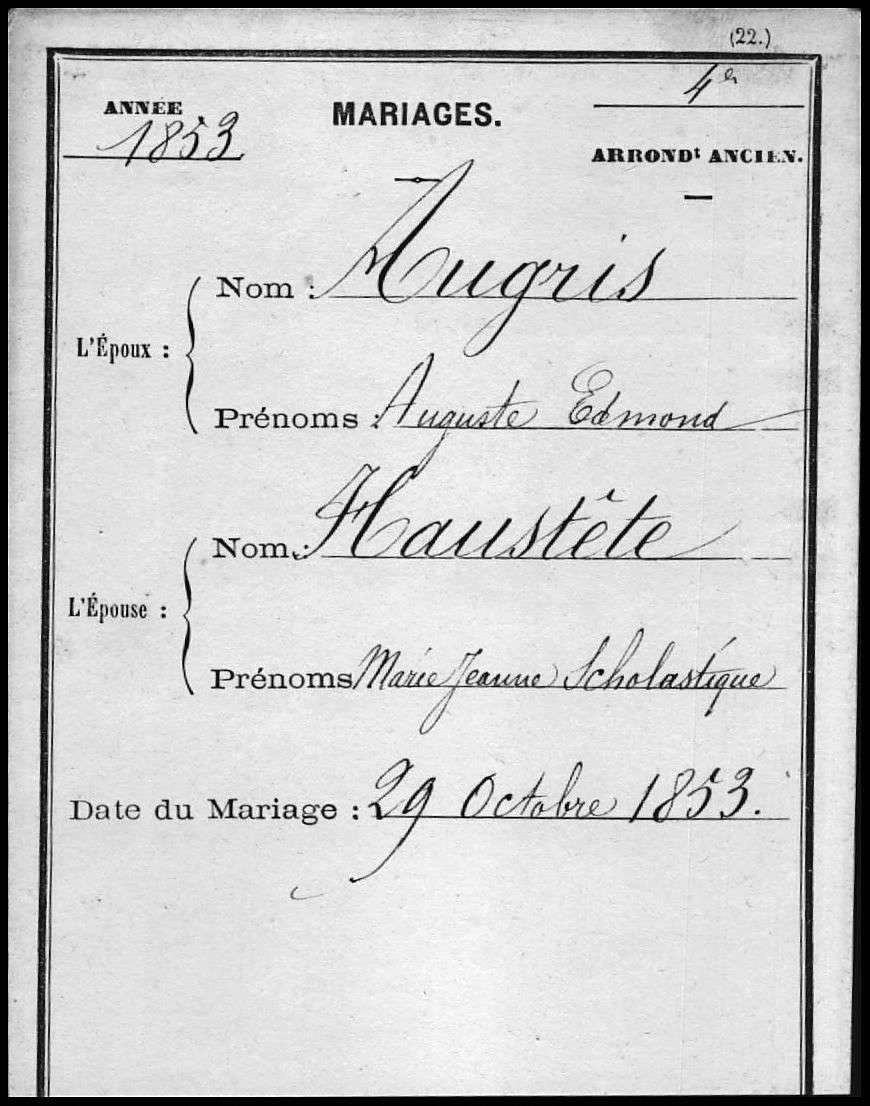 (22.)
ANNÉE
1853
MARIAGES.
4e
ARRONDt ANCIEN.
L'Époux :
Nom : Augris
Prénoms : Auguste Edmond
L'Épouse :
Nom : Haustête
Prénoms Marie Jeanne Scholastique
Date du Mariage : 29 Octobre 1853.